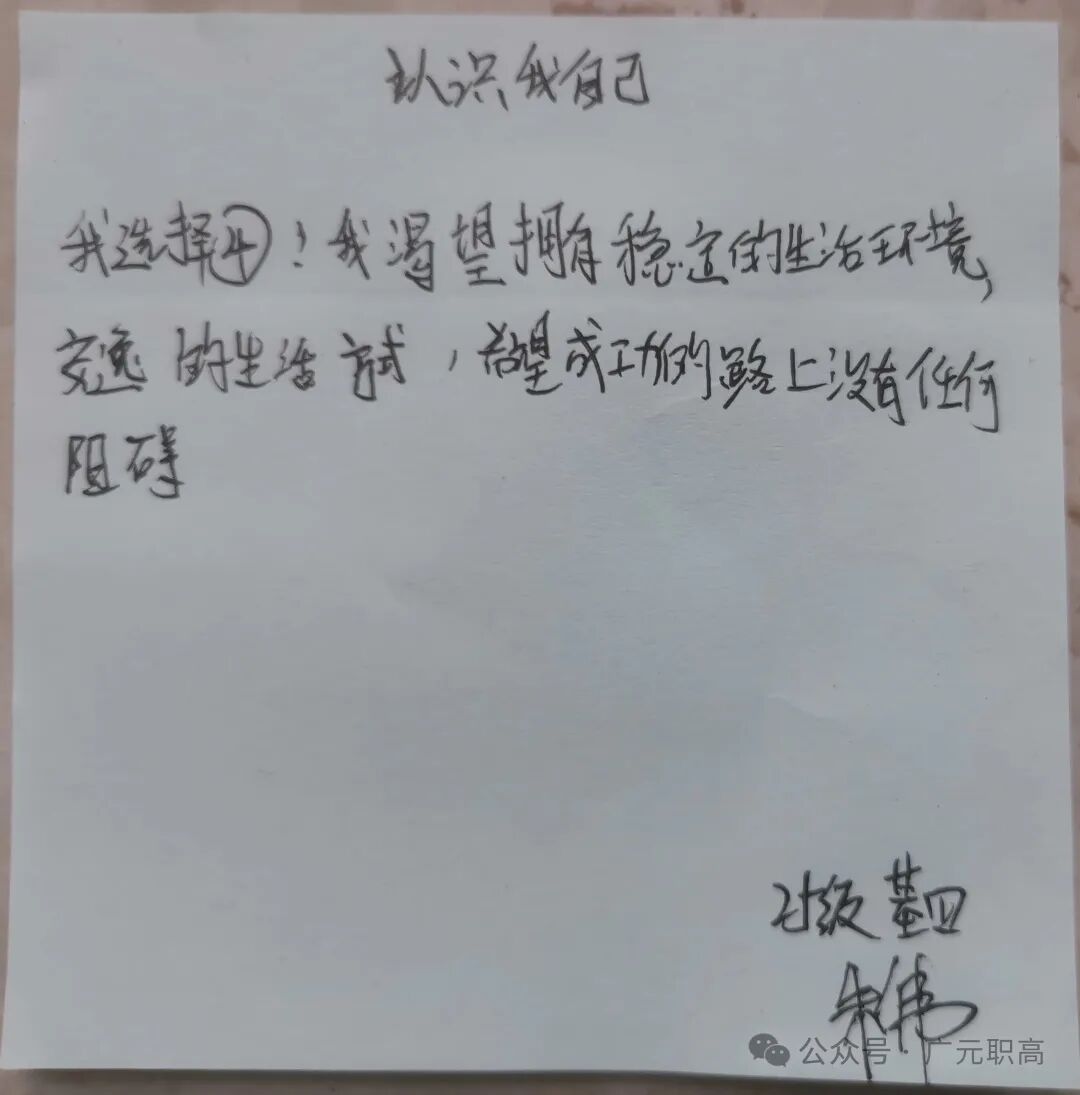 认识我自己
我选择④!我渴望拥有稳定的生活环境,
安逸的生活方式,希望成功的路上没有任何
阻碍
级
朱伟
公众号·广元职高